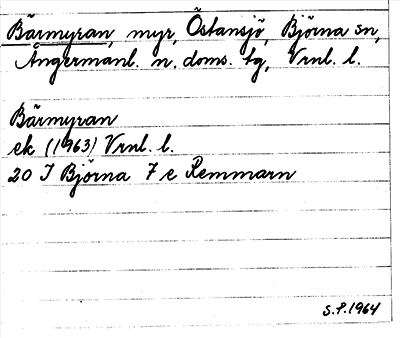 Bärmyran, myr, Östansjö, Björna sn,
Ångermanl. n. doms. tg, Vrnl. l.
Bärmyran
ek (1963) Vrnl. l.
20 I Björna 7 e Remmarn
S.P. 1964